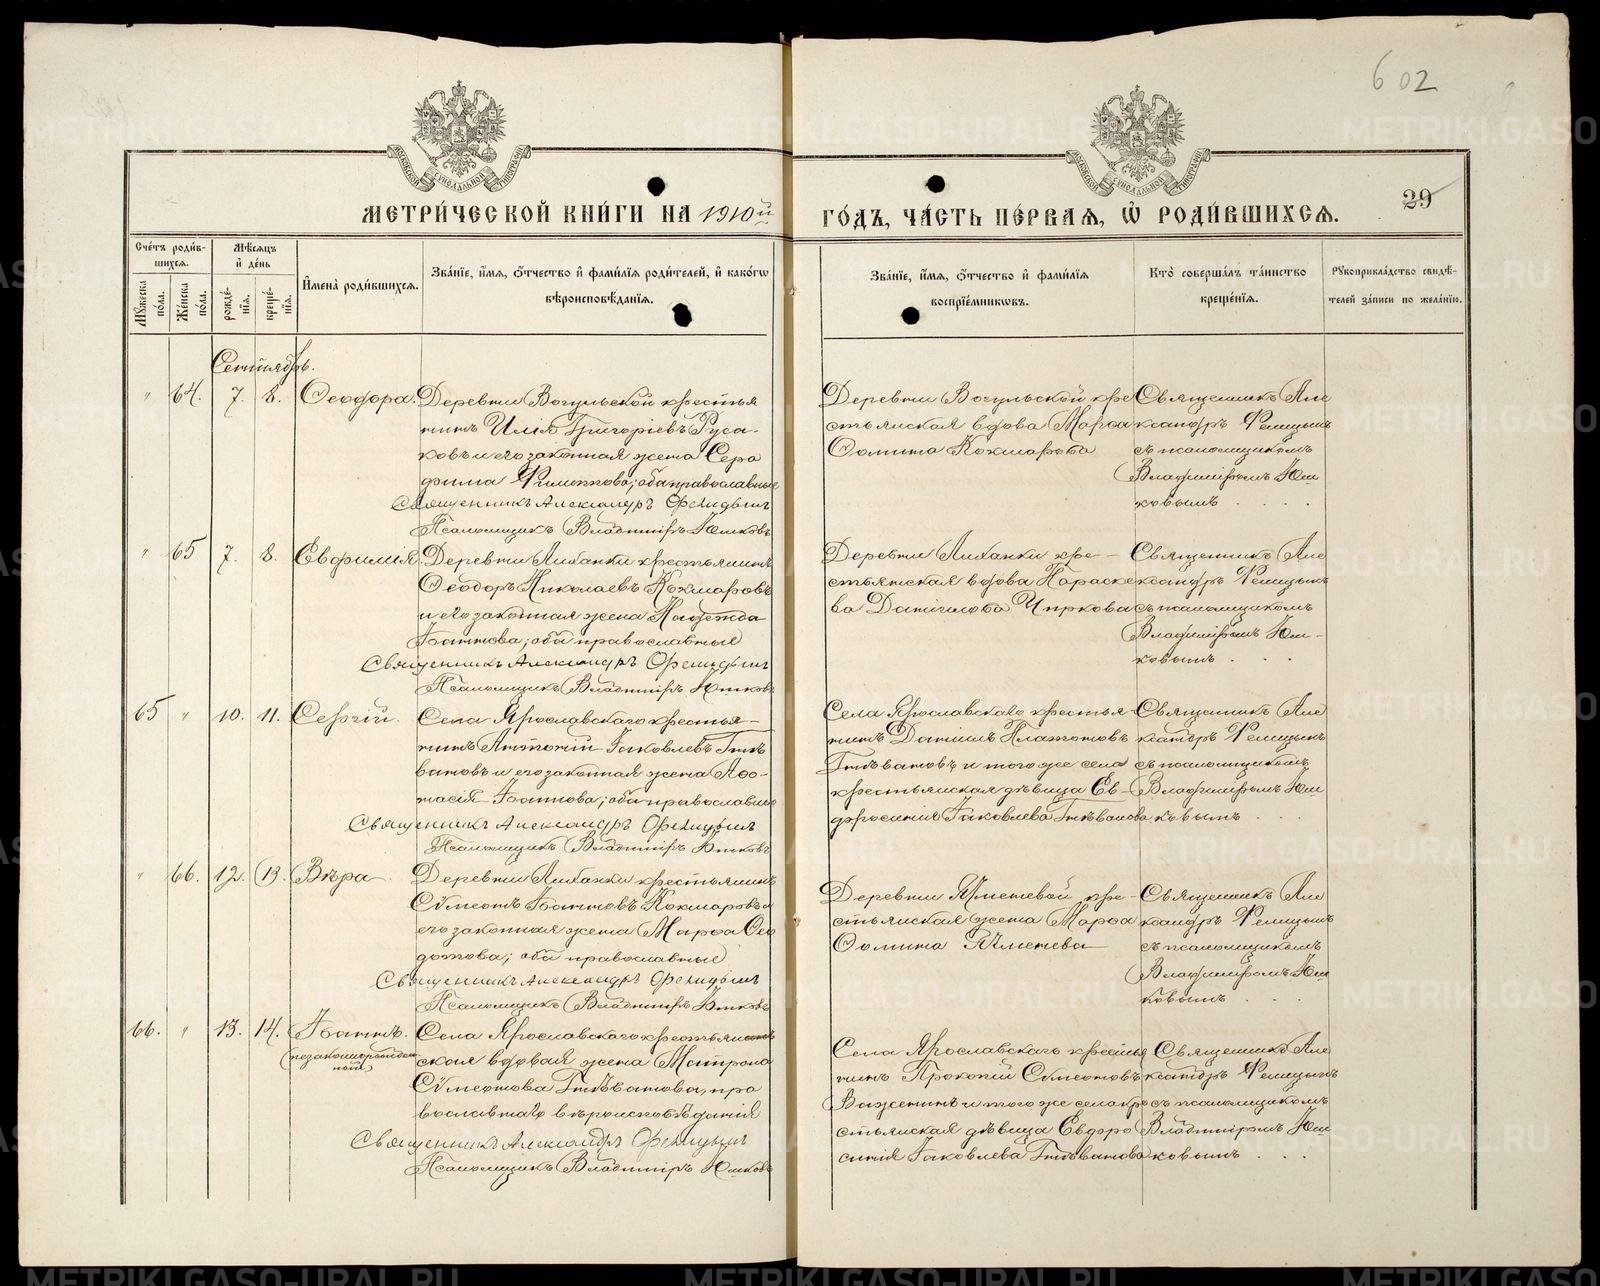 602
МОСКОВСКОЙ СѴНОДАЛЬНОЙ ТИПОГРАФІИ
МОСКОВСКОЙ СѴНОДАЛЬНОЙ ТИПОГРАФІИ
МЕТРИ́ЧЕСКОЙ КНИ́ГИ НА 1910й
ГО́ДЪ, ЧА́СТЬ ПЕ́РВАЯ, Ѡ РОДИ́ВШИХСЯ.
29
Сче́тъ роди́в-
шихся.
Му́жеска по́ла.
Же́нска по́ла.
Мѣ́сяцъ
и҆ де́нь
рожде́-
нїя.
креще́-
нїя.
И҆мена̀ роди́вшихся.
Зва́нїе, и҆́мя, о҆́тчество и҆ фами́лїя роди́телей, и҆ како́гѡ
вѣроисповѣ́данїя.
Зва́нїе, и҆́мя, о҆́тчество и҆ фами́лїя
воспрїе́мникѡвъ.
Кто̀ соверша́лъ та́инство
креще́нїя.
Рꙋкоприкла́дство свидѣ́-
телей за́писи по жела́нїю.
Сентябрь.
" 64. 7. 8. Ѳеодора.
Деревни Вогульской крестья
нинъ Илья Григоріевъ Руса-
ковъ и его законная жена Сера
фима Филиппова; оба православные
Священникъ Александръ Фелицынъ
Псаломщикъ Владиміръ Юшковъ
Деревни Вогульской кре
стьянская вдова Марѳа
Ѳомина Кохмарева
Священникъ Але
ксандръ Фелицынъ
съ псаломщикомъ
Владиміромъ Юш
ковымъ . . . .
" 65 7. 8. Евфимія.
Деревни Лиханки крестьянинъ
Ѳеодоръ Николаевъ Кохмаровъ
и его законная жена Надежда
Іоаннова; оба православные
Священникъ Александръ Фелицынъ
Псаломщикъ Владиміръ Юшковъ
Деревни Лиханки кре-
стьянская вдова Параске
ва Даниилова Чиркова
Священникъ Але
ксандръ Фелицынъ
съ псаломщикомъ
Владиміромъ Юш-
ковымъ . . .
65 " 10. 11. Сергій.
Села Ярославскаго крестья-
нинъ Антоній Іаковлевъ Гнѣ
вановъ и его законная жена Аѳа-
насія Іоаннова; оба православные
Священникъ Александръ Фелицынъ
Псаломщикъ Владиміръ Юшковъ
Села Ярославскаго крестья-
нинъ Даніилъ Платоновъ
Гнѣвановъ и того же села
крестьянская дѣвица Ев-
фросинія Іаковлева Гнѣванова
Священникъ Але
ксандръ Фелицынъ
съ псаломщикомъ
Владиміромъ Юш
ковымъ . . .
" 66. 12. 13. Вѣра.
Деревни Лиханки крестьянинъ
Сѵмеонъ Іоанновъ Кохмаровъ и
его законная жена Марѳа Ѳео
дотова; оба православные
Священникъ Александръ Фелицынъ
Псаломщикъ Владиміръ Юшковъ
Деревни Ячменевой кре-
стьянская жена Марѳа
Ѳомина Ячменева
Священникъ Але
ксандръ Фелицынъ
съ псаломщикомъ
Владиміромъ Юш
ковымъ . . .
66. " 13. 14. Іоаннъ.
(незаконнорожден
ный)
Села Ярославскаго крестьян
ская вдовая жена Матрона
Сѵмеонова Гнѣванова, пра
вославнаго вѣроисповѣданія
Священникъ Александръ Фелицынъ
Псаломщикъ Владиміръ Юшковъ
Села Ярославскаго крестья
нинъ Прокопій Сѵмеоновъ
Важенинъ и того же села кре
стьянская дѣвица Евдоро
синія Іаковлева Гнѣванова
Священникъ Але
ксандръ Фелицынъ
съ псаломщикомъ
Владиміромъ Юш
ковымъ . . .
METRIKI.GASO-URAL.RU